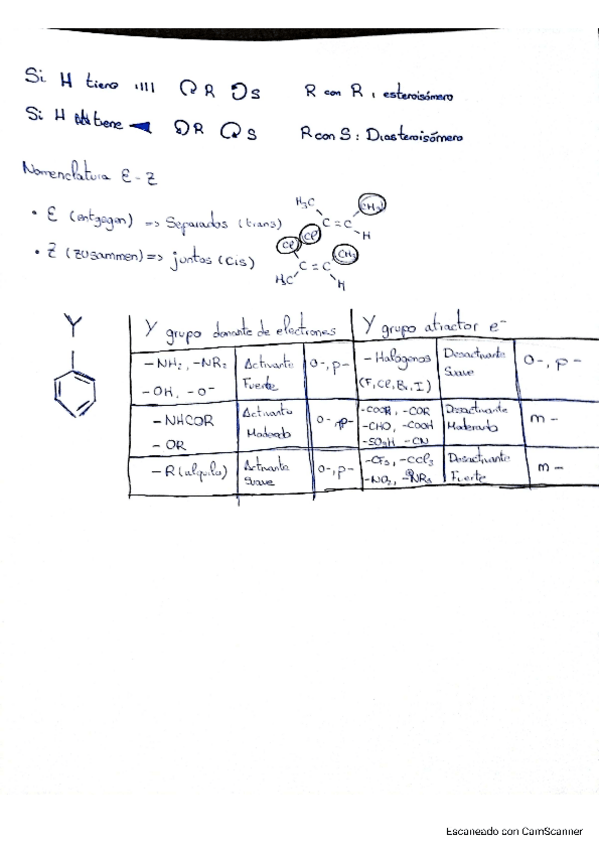 Si H tiene ''''' R S R con R : esteroisómero
Si H tiene R S R con S : Diasteroisómero
Nomenclatura E - Z
• E (entgegen) => Separados (trans)
• Z (zusammen) => juntos (cis)
H₃C CH₃
C = C
Cl H
Cl CH₃
C = C
H₃C H
Y
Y grupo donante de electrones Y grupo atractor e⁻
-NH₂, -NR₂ Activante Fuerte o-, p- -Halogenos Desactivante Suave o-, p-
-OH, -O⁻ (F, Cl, Br, I)
-NHCOR Activante Moderado o-, p- -COOR, -COR Desactivante Moderado m-
-OR -CHO, -COOH
-SO₃H -CN
-R (alquilo) Activante Suave o-, p- -CF₃, -CCl₃ Desactivante Fuerte m-
-NO₂, -NR₃
Escaneado con CamScanner